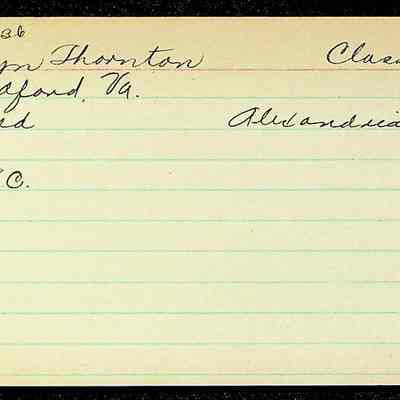 36
yn Thornton Clas
dford, Va.
ed Alexandria
C.